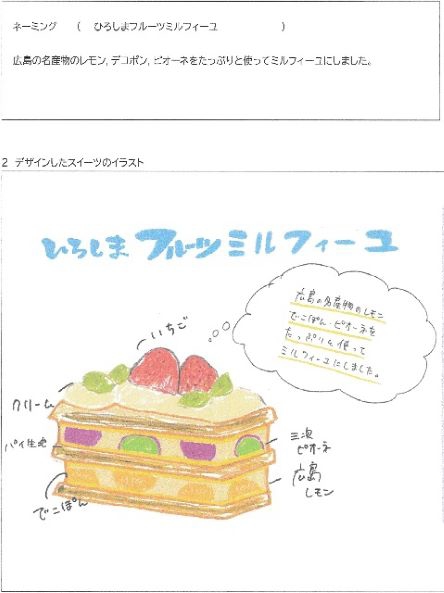 ネーミング （ ひろしまフルーツミルフィーユ ）
広島の名産物のレモン, デコポン, ピオーネをたっぷりと使ってミルフィーユにしました。
2 デザインしたスイーツのイラスト
ひろしまフルーツミルフィーユ
広島の名産物のレモン
でこぽん・ピオーネを
たっぷりと使って
ミルフィーユにしました。
いちご
クリーム
パイ生地
でこぽん
三次
ピオーネ
広島
レモン